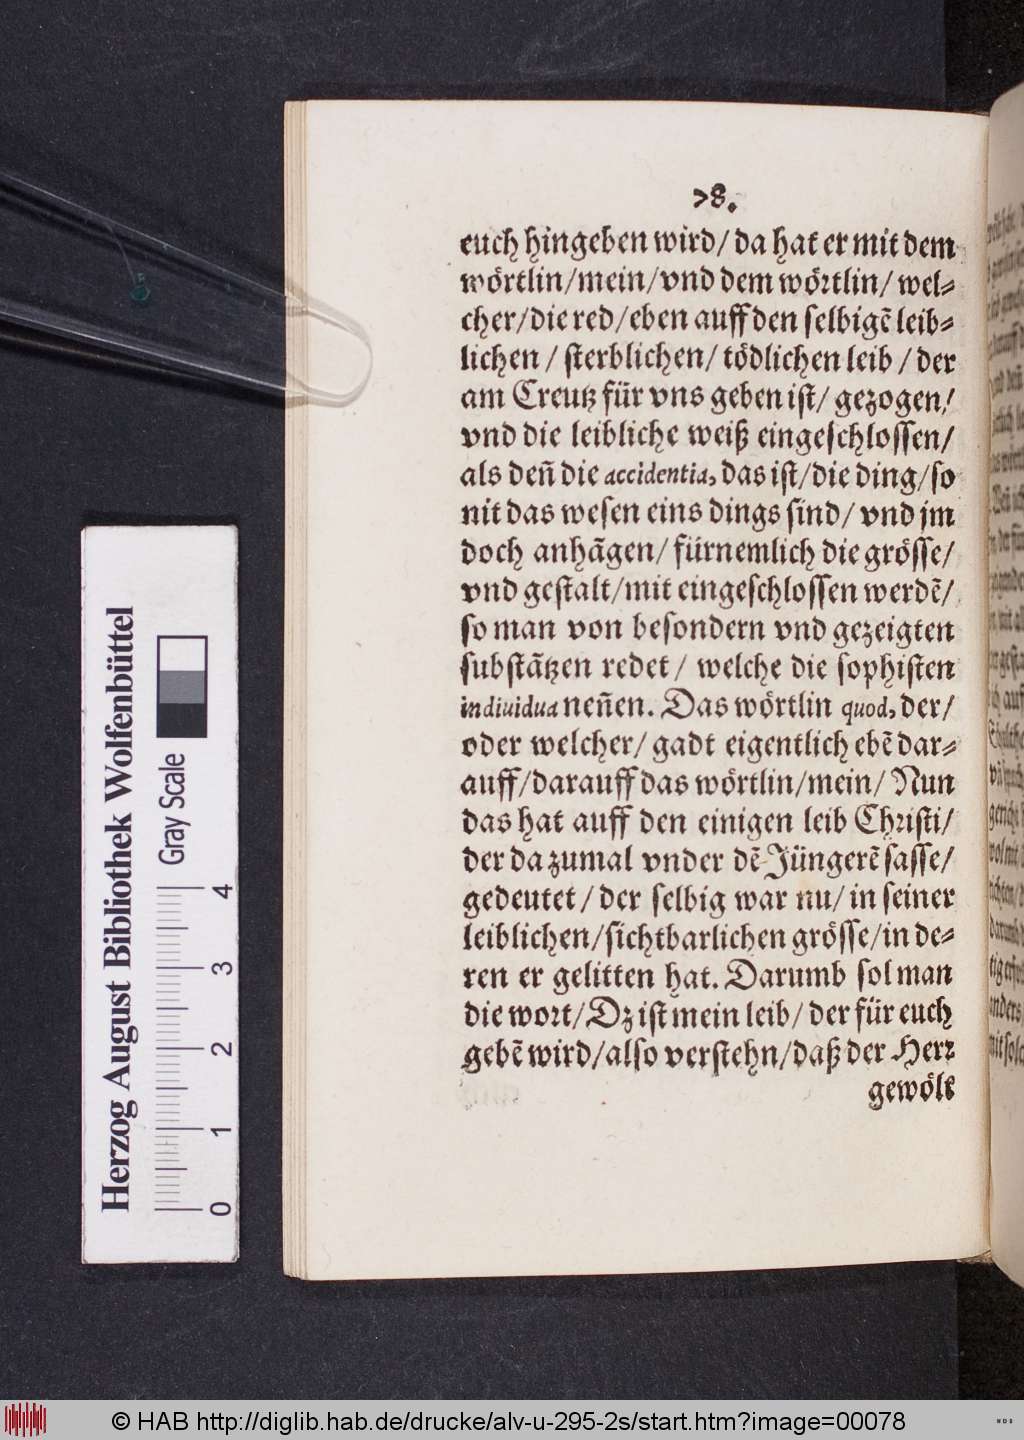 78.
euch hingeben wird/ da hat er mit dem
wörtlin/mein/vnd dem wörtlin/ wel⸗
cher/die red/eben auff den ſelbigē leib⸗
lichen / ſterblichen/ tödlichen leib / der
am Creutz für vns geben iſt/ gezogen/
vnd die leibliche weiß eingeſchloſſen/
als deñ die accidentia, das iſt/die ding/ſo
nit das weſen eins dings ſind/ vnd jm
doch anhãgen/ fürnemlich die gröſſe/
vnd geſtalt/mit eingeſchloſſen werdē/
ſo man von beſondern vnd gezeigten
ſubſtãtzen redet / welche die ſophiſten
indiuidua neñen. Das wörtlin quod, der/
oder welcher/ gadt eigentlich ebē dar⸗
auff/darauff das wörtlin/mein/ Nun
das hat auff den einigen leib Chriſti/
der dazumal vnder dē Jüngerē ſaſſe/
gedeutet / der ſelbig war nu/ in ſeiner
leiblichen/ſichtbarlichen gröſſe/in de⸗
ren er gelitten hat. Darumb ſol man
die wort/ Dz iſt mein leib/ der für euch
gebē wird/alſo verſtehn/daß der Herr
gewölt
Herzog August Bibliothek Wolfenbüttel
Gray Scale
0 1 2 3 4
© HAB http://diglib.hab.de/drucke/alv-u-295-2s/start.htm?image=00078